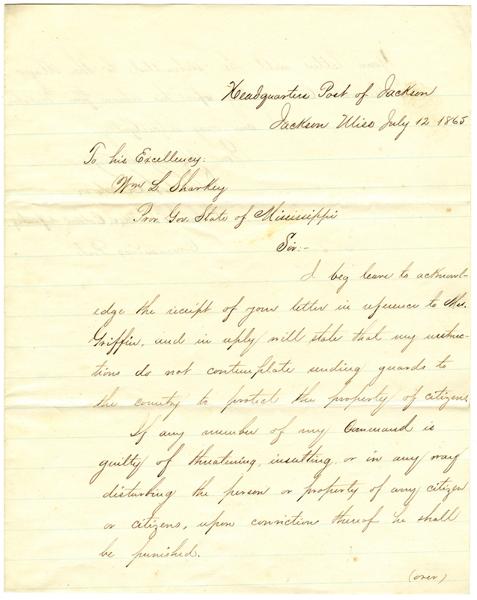 Headquarters Post of Jackson
Jackson Miss July 12 1865
To his Excellency:
Wm L. Sharkey
Prov. Gov. State of Mississippi
Sir:-
I beg leave to acknowl-
edge the receipt of your letter in reference to Mrs.
Griffin, and in reply will state that my instruc-
tions do not contemplate sending guards to
the country to protect the property of citizens
If any member of my Command is
guilty of threatening, insulting, or in any way
disturbing the person or property of any citizen
or citizens, upon conviction thereof he shall
be punished.
(over)